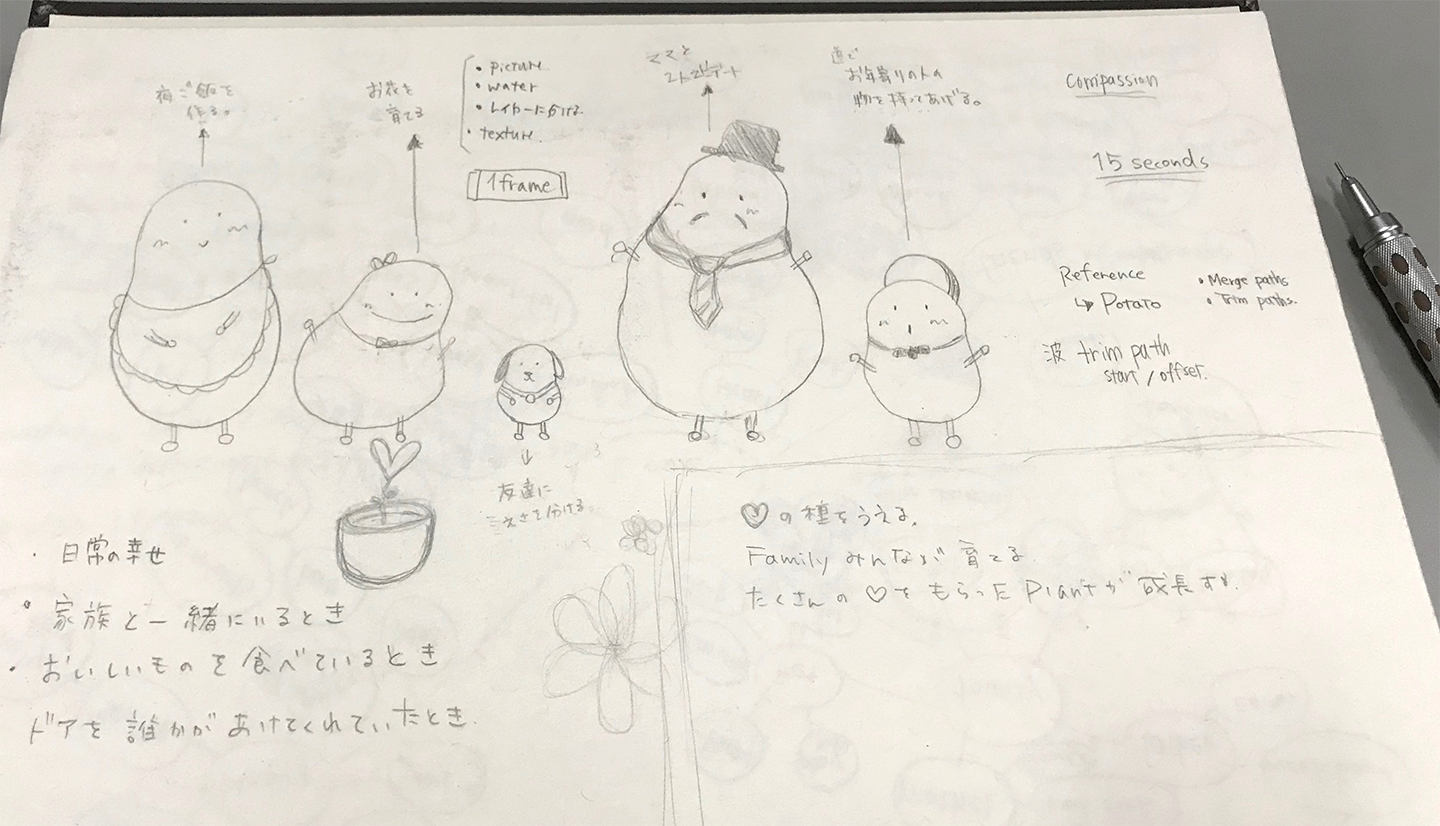 夜ご飯を
作る。
お花を
育てる
・picture
・water
・レイヤーに分ける
・texture
1frame
ママと
デート
道で
お年寄りの人の
物を持ってあげる。
compassion
15 seconds
Reference
↳ Potato
・Merge paths
・Trim paths.
波 trim path
start / offset.
友達に
えさを分ける。
・日常の幸せ
・家族と一緒にいるとき
・おいしいものを食べているとき
ドアを誰かがあけてくれていたとき.
♡の種をうえる。
Family みんなが育てる
たくさんの♡をもらったPlantが成長する.